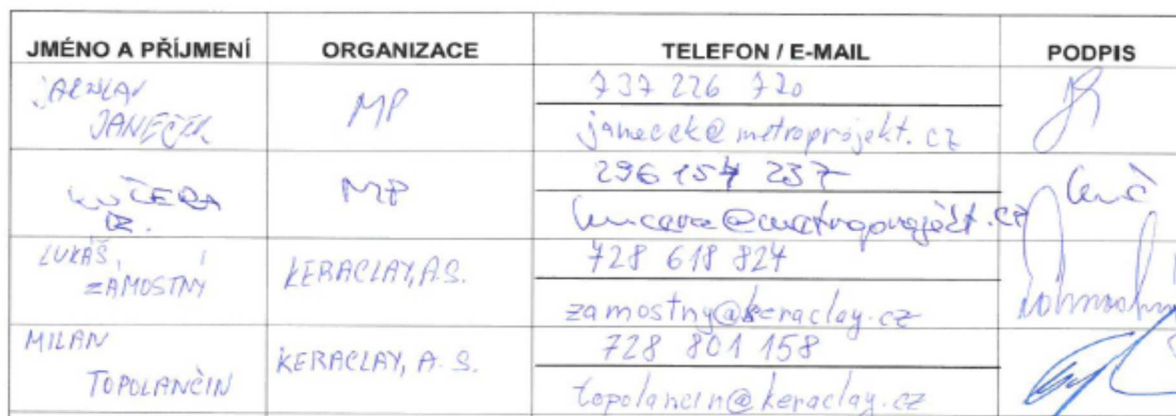 JMÉNO A PŘÍJMENÍ ORGANIZACE TELEFON / E-MAIL PODPIS
JAROSLAV JANEČEK MP 737 226 720
janecek@metroprojekt.cz
KUČERA MP 296 154 237
kucera@metroprojekt.cz
LUKÁŠ ZÁMOSTNÝ KERACLAY, A.S. 728 618 824
zamostny@keraclay.cz
MILAN TOPOLANČIN KERACLAY, A.S. 728 801 158
topolancin@keraclay.cz